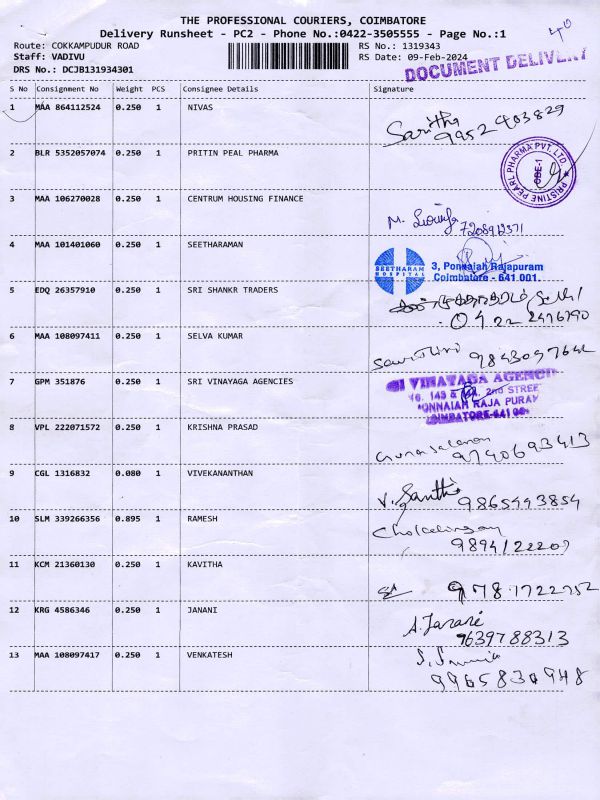 THE PROFESSIONAL COURIERS, COIMBATORE
Delivery Runsheet - PC2 - Phone No.:0422-3505555 - Page No.:1
Route: COKKAMPUDUR ROAD
Staff: VADIVU
DRS No.: DCJB131934301
RS No.: 1319343
RS Date: 09-Feb-2024
DOCUMENT DELIVERY
S No Consignment No Weight PCS Consignee Details Signature
1 MAA 864112524 0.250 1 NIVAS
Saritha
9952403829
2 BLR 5352057074 0.250 1 PRITIN PEAL PHARMA
PRISTINE PEARL PHARMA PVT. LTD.
CBE-1
3 MAA 106270028 0.250 1 CENTRUM HOUSING FINANCE
M.
7208912371
4 MAA 101401060 0.250 1 SEETHARAMAN
SEETHARAM
HOSPITAL
3, Ponnaiah Rajapuram
Coimbatore - 641 001.
5 EDQ 26357910 0.250 1 SRI SHANKR TRADERS
0422 2476790
6 MAA 108097411 0.250 1 SELVA KUMAR
9843097642
7 GPM 351876 0.250 1 SRI VINAYAGA AGENCIES
SRI VINAYAGA AGENCIES
2ND STREET
PONNAIAH RAJA PURAM
COIMBATORE-641 001
8 VPL 222071572 0.250 1 KRISHNA PRASAD
9740693413
9 CGL 1316832 0.080 1 VIVEKANANTHAN
V. Santhi 9865993854
10 SLM 339266356 0.895 1 RAMESH
Chokkalingam
9894122207
11 KCM 21360130 0.250 1 KAVITHA
9781722752
12 KRG 4586346 0.250 1 JANANI
A. Janani
9639788313
13 MAA 108097417 0.250 1 VENKATESH
9965830948